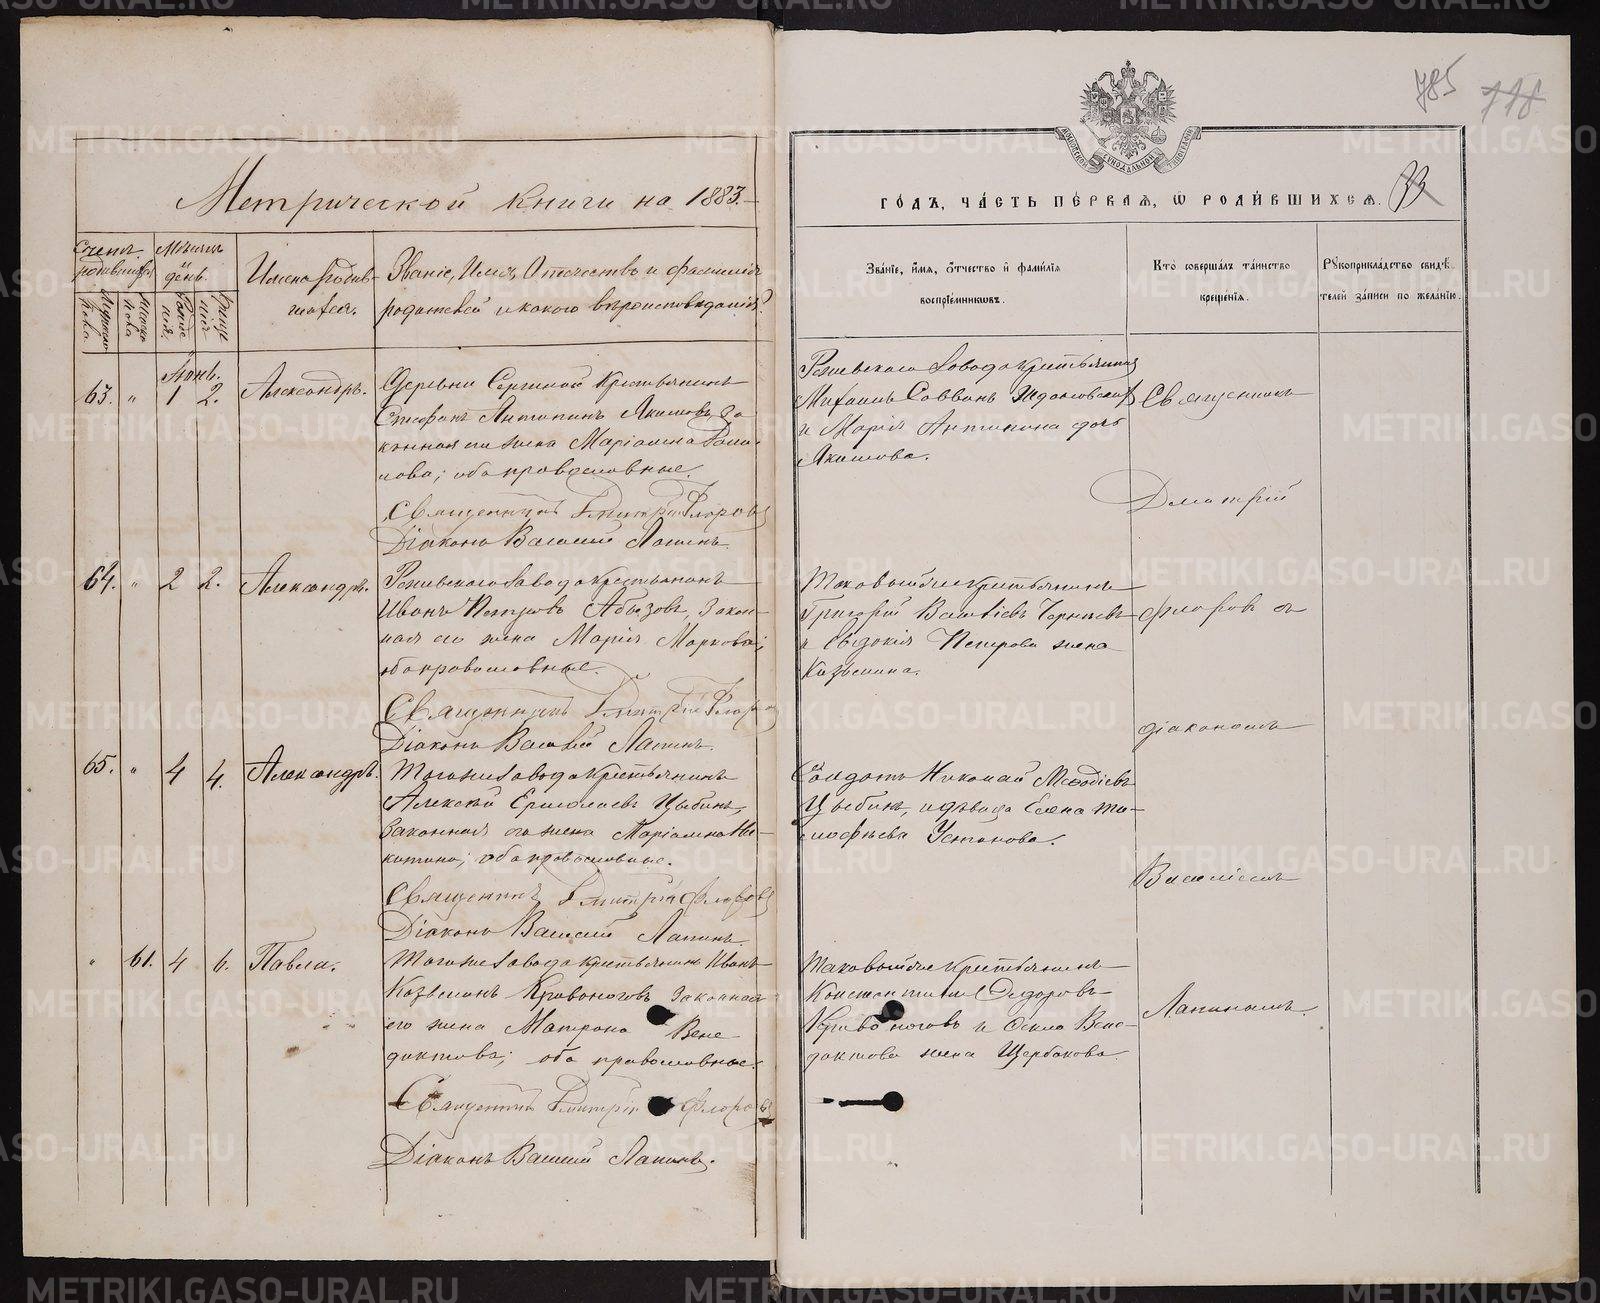 785 118
Метрической книги на 1883.
годъ, часть первая, ѡ родившихся. 33
Счетъ родившихся
Мужеска пола
Женска пола
Мѣсяцъ и день
рожденія
крещенія
Имена родившихся.
Званіе, Имя, Отчество и фамилія
родителей и какого вѣроисповѣданія?
Званіе, имя, отчество и фамилія
воспріемниковъ.
Кто совершалъ таинство
крещенія.
Рукоприкладство свидѣ-
телей записи по желанію.
Іюнь.
63. " 1 2. Александръ.
Деревни Сергиной Крестьянинъ
Стефанъ Антипинъ Якимовъ, за
конная его жена Маріамна Рома
нова; оба православные.
Священникъ Дмитрій Флоровъ
Діаконъ Василій Лапинъ.
Режевскаго завода крестьянинъ
Михаилъ Саввинъ
и Марія Антипина дочь
Якимова.
64. " 2 2. Александръ.
Режевскаго завода крестьянинъ
Иванъ Петровъ Абызовъ, Закон-
ная его жена Марія Маркова;
оба православные.
Священникъ Дмитрій Флоровъ
Діаконъ Василій Лапинъ.
Таковойже крестьянинъ
Григорій
и Евдокія Петрова жена
Казьмина.
65. " 4 4. Александръ.
Тогоже завода крестьянинъ
Алексѣй Ермолаевъ Цыбинъ,
Законная его жена Маріамна Ни-
китина; оба православные.
Священникъ Дмитрій Флоровъ
Діаконъ Василій Лапинъ.
Солдатъ Николай Меѳодіевъ
Цыбинъ, и дѣвица Елена Ти-
моѳеева Устинова.
" 61. 4 6. Павла.
Тогоже завода крестьянинъ Иванъ
Козьминъ Кривоноговъ Законная
его жена Матрона Вене
диктова; оба православные.
Священникъ Дмитрій Флоровъ
Діаконъ Василій Лапинъ.
Таковойже крестьянинъ
Константинъ Ѳедоровъ
Кривоноговъ и Ѳекла Вене-
диктова жена Щербакова.
Священникъ
Дмитрій
Флоровъ съ
діакономъ
Василіемъ
Лапинымъ.